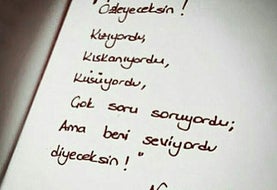 "Özleyeceksin!
Kızıyordu,
Kıskanıyordu,
Küsüyordu,
Çok soru soruyordu;
Ama beni seviyordu
diyeceksin!"